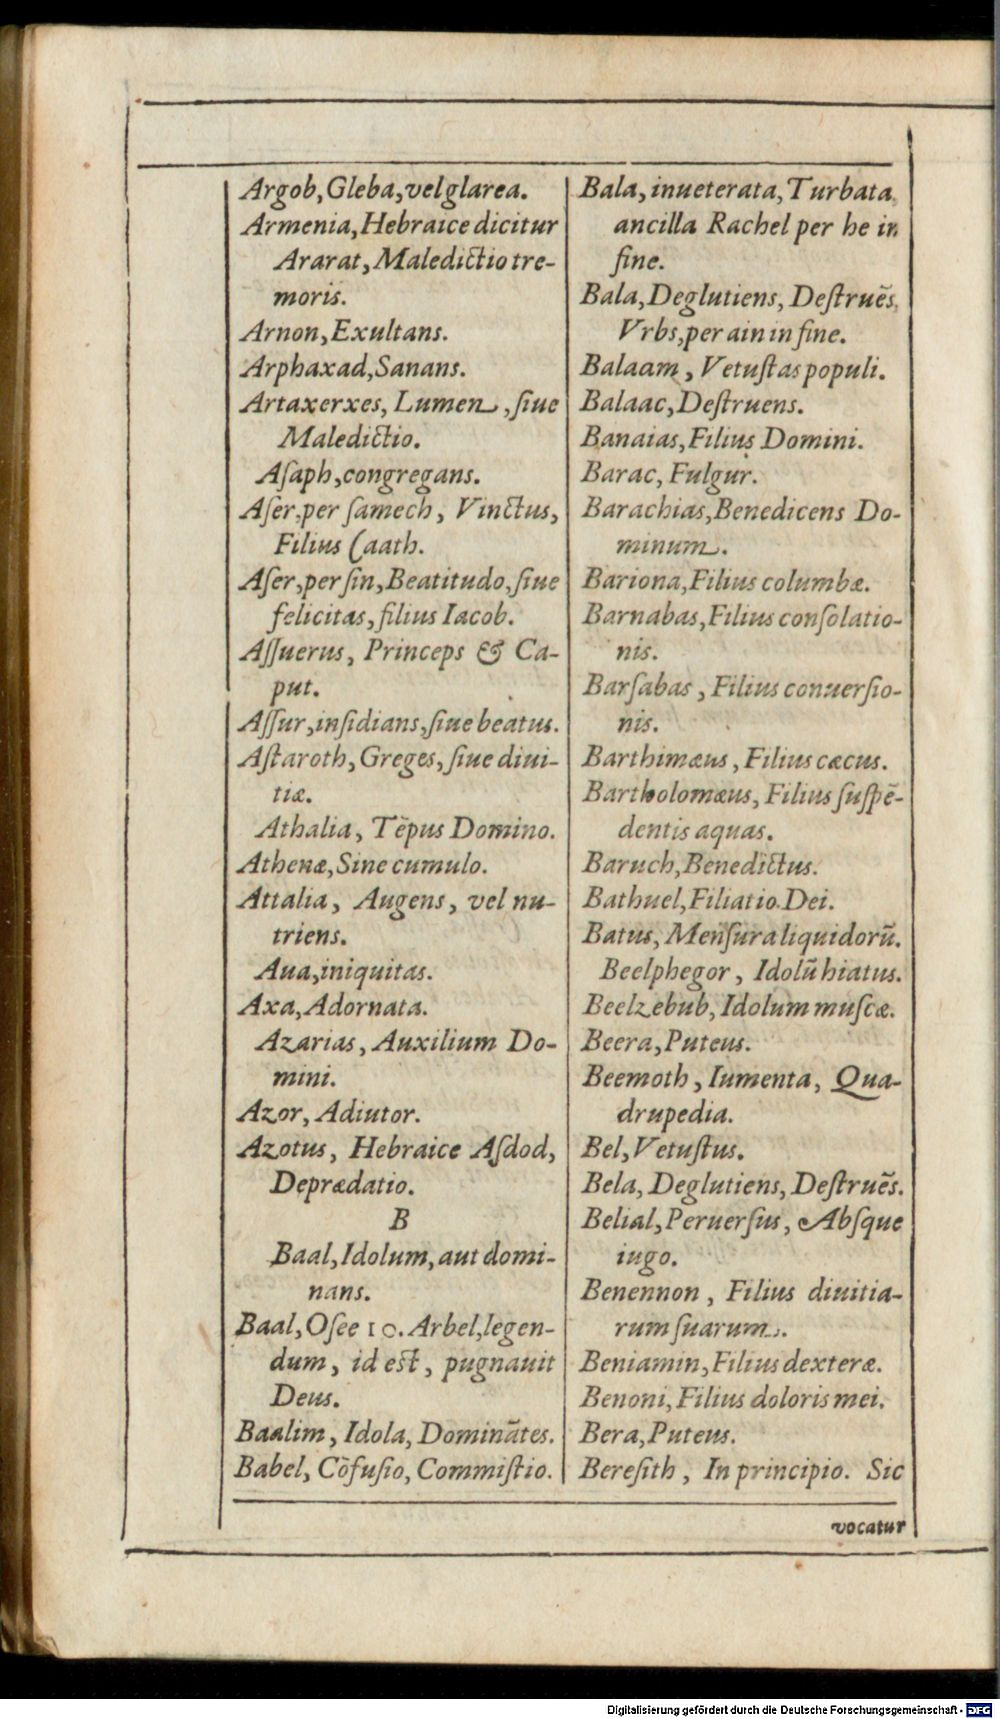 Argob, Gleba, vel glarea.
Armenia, Hebraice dicitur
Ararat, Maledictio tre-
moris.
Arnon, Exultans.
Arphaxad, Sanans.
Artaxerxes, Lumen, ſiue
Maledictio.
Aſaph, congregans.
Aſer, per ſamech, Vinctus,
Filius Caath.
Aſer, per ſin, Beatitudo, ſiue
felicitas, filius Iacob.
Aſſuerus, Princeps & Ca-
put.
Aſſur, inſidians, ſiue beatus.
Aſtaroth, Greges, ſiue diui-
tiæ.
Athalia, Tēpus Domino.
Athenæ, Sine cumulo.
Attalia, Augens, vel nu-
triens.
Aua, iniquitas.
Axa, Adornata.
Azarias, Auxilium Do-
mini.
Azor, Adiutor.
Azotus, Hebraice Aſdod,
Deprædatio.
B
Baal, Idolum, aut domi-
nans.
Baal, Oſee 10. Arbel, legen-
dum, id eſt, pugnauit
Deus.
Baalim, Idola, Dominātes.
Babel, Cōfuſio, Commiſtio.
Bala, inueterata, Turbata,
ancilla Rachel per he in
fine.
Bala, Deglutiens, Deſtruēs,
Vrbs, per ain in fine.
Balaam, Vetuſtas populi.
Balaac, Deſtruens.
Banaias, Filius Domini.
Barac, Fulgur.
Barachias, Benedicens Do-
minum.
Bariona, Filius columbæ.
Barnabas, Filius conſolatio-
nis.
Barſabas, Filius conuerſio-
nis.
Barthimæus, Filius cæcus.
Bartholomæus, Filius ſuſpē-
dentis aquas.
Baruch, Benedictus.
Bathuel, Filiatio Dei.
Batus, Menſura liquidorū.
Beelphegor, Idolū hiatus.
Beelzebub, Idolum muſcæ.
Beera, Puteus.
Beemoth, Iumenta, Qua-
drupedia.
Bel, Vetuſtus.
Bela, Deglutiens, Deſtruēs.
Belial, Peruerſus, Abſque
iugo.
Benennon, Filius diuitia-
rum ſuarum.
Beniamin, Filius dexteræ.
Benoni, Filius doloris mei.
Bera, Puteus.
Bereſith, In principio. Sic
vocatur
Digitalisierung gefördert durch die Deutsche Forschungsgemeinschaft - DFG